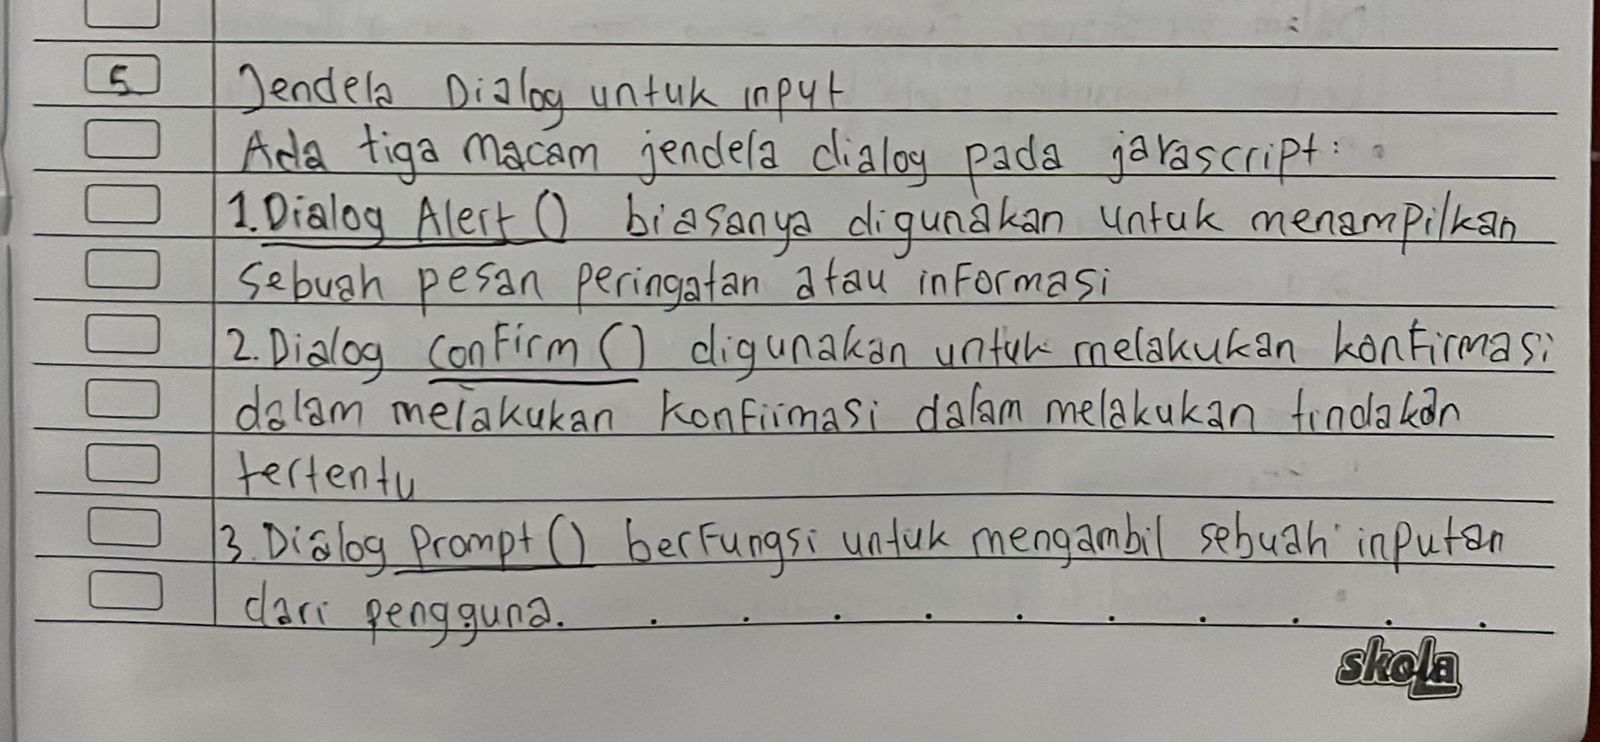 5 Jendela Dialog untuk input
Ada tiga macam jendela dialog pada javascript:
1. Dialog Alert () biasanya digunakan untuk menampilkan
sebuah pesan peringatan atau informasi
2. Dialog confirm () digunakan untuk melakukan konfirmasi
dalam melakukan konfirmasi dalam melakukan tindakan
tertentu
3. Dialog Prompt () berfungsi untuk mengambil sebuah inputan
dari pengguna. . . . . . . . . . .
skola